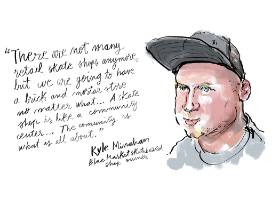 "There are not many
retail skate shops anymore,
but we are going to have
a brick and mortar store
no matter what... A skate
shop is like a community
center... The comunity is
what is all about."
Kyle
Black Market Skateboard
Shop owner